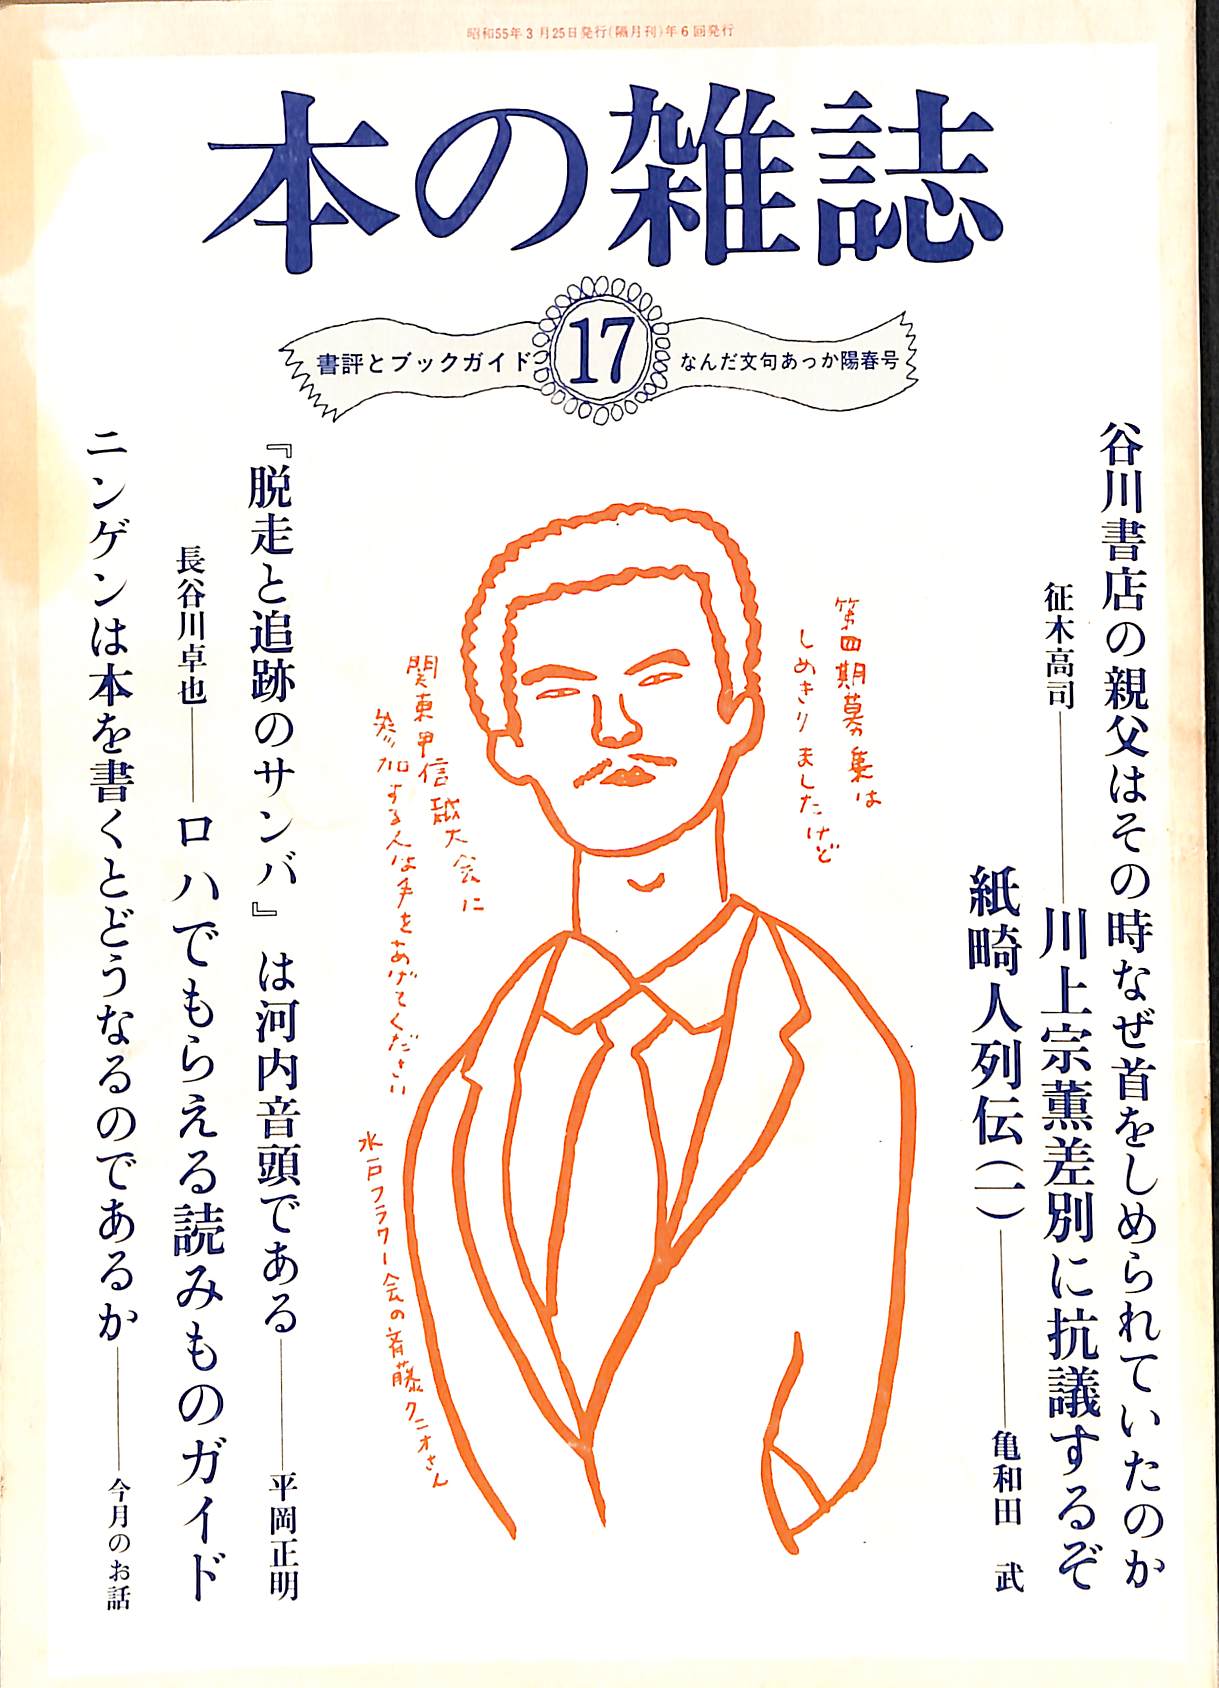 昭和55年3月25日発行(隔月刊)年6回発行
本の雑誌
書評とブックガイド
17
なんだ文句あっか陽春号
谷川書店の親父はその時なぜ首をしめられていたのか
征木高司――川上宗薫差別に抗議するぞ
紙畸人列伝(一)――亀和田 武
第四期募集は
しめきりましたけど
関東甲信越大会に
参加する人は手をあげてください
水戸フラワー会の斉藤クニオさん
『脱走と追跡のサンバ』は河内音頭である――平岡正明
長谷川卓也――ロハでもらえる読みものガイド
ニンゲンは本を書くとどうなるのであるか――今月のお話